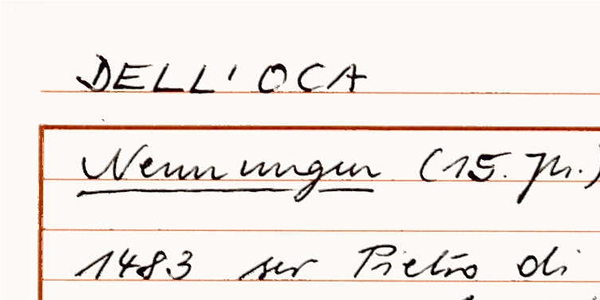 DELL'OCA
Nennungen (15. Jh.)
1483 ser Pietro di